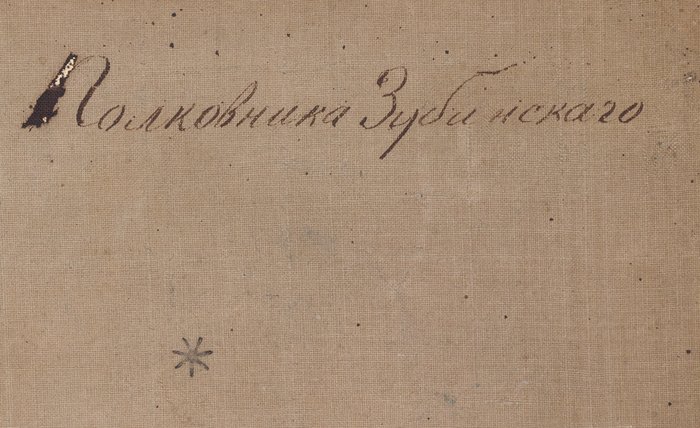 Полковника Зубинскаго